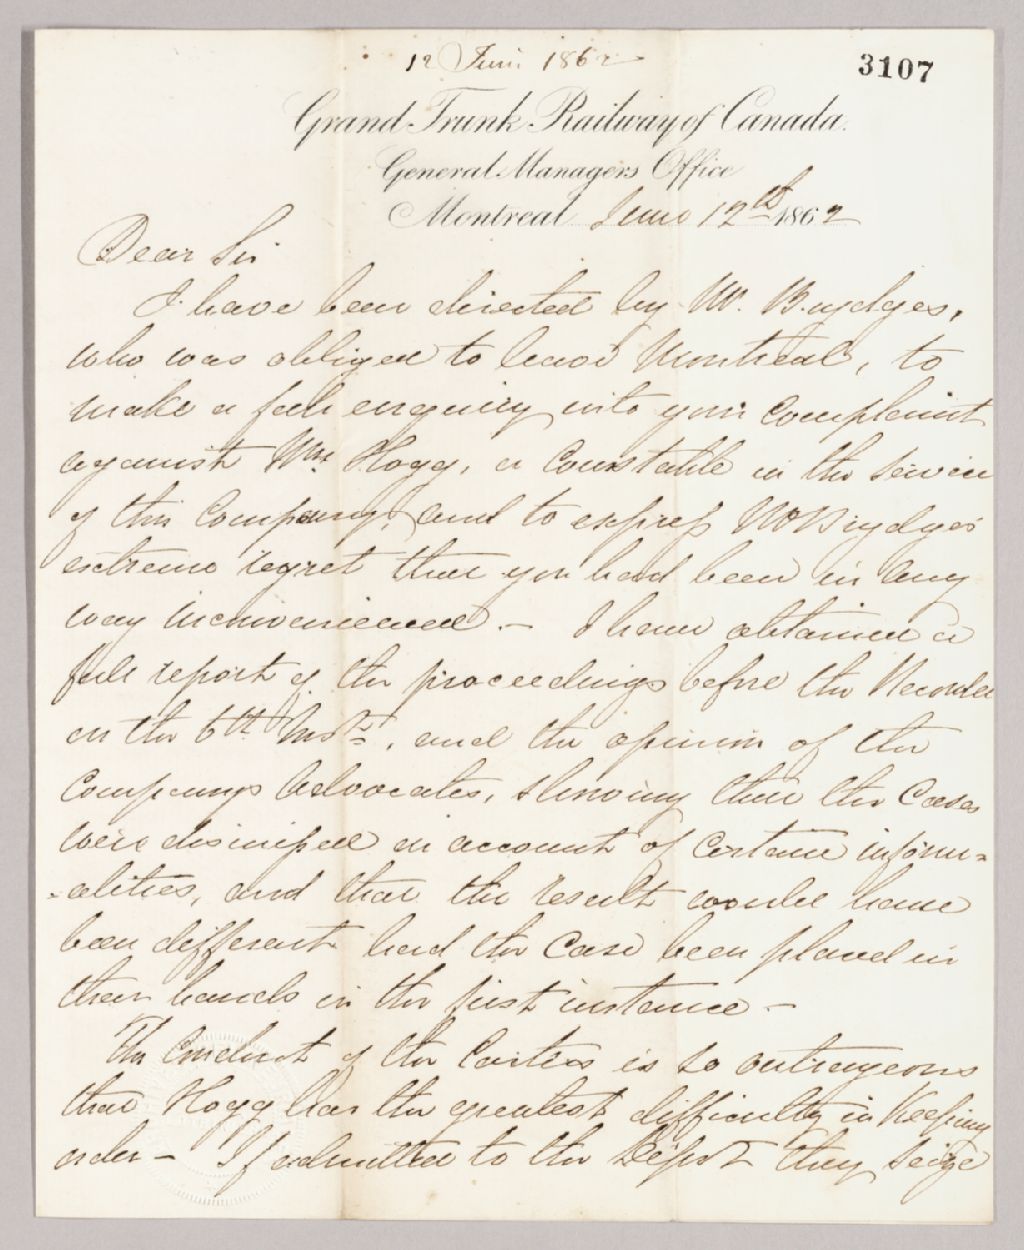 12 Juin 1862
3107
Grand Trunk Railway of Canada.
General Managers Office
Montreal June 12th 1862
Dear Sir
I have been directed by Mr. Brydges,
who was obliged to leave Montreal, to
make a full enquiry into your complaint
against Wm Hogg, a Constable in the service
of this Company, and to express Mr Brydges
extreme regret that you had been in any
way inconvenienced. — I have obtained a
full report of the proceedings before the Recorder
on the 6th Inst, and the opinion of the
Companys Advocates, showing that the Cases
were dismissed on account of certain inform=
=alities, and that the result would have
been different had the Case been placed in
their hands in the first instance —
The Conduct of the Carters is so outrageous
that Hogg has the greatest difficulty in Keeping
order — If admitted to the Depot they seize